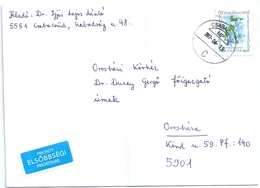 Feladó: Dr. Ijjas Lajos Sándor
5551 Csabacsűd, Szabadság u. 48.
CSABA
C
Magyarország
Orosházi Kórház
Dr. Duray Gergő főigazgató
úrnak
Orosháza
Könd u 59. Pf.: 140
5901
PRIORITY
ELSŐBBSÉGI
PRIORITAIRE